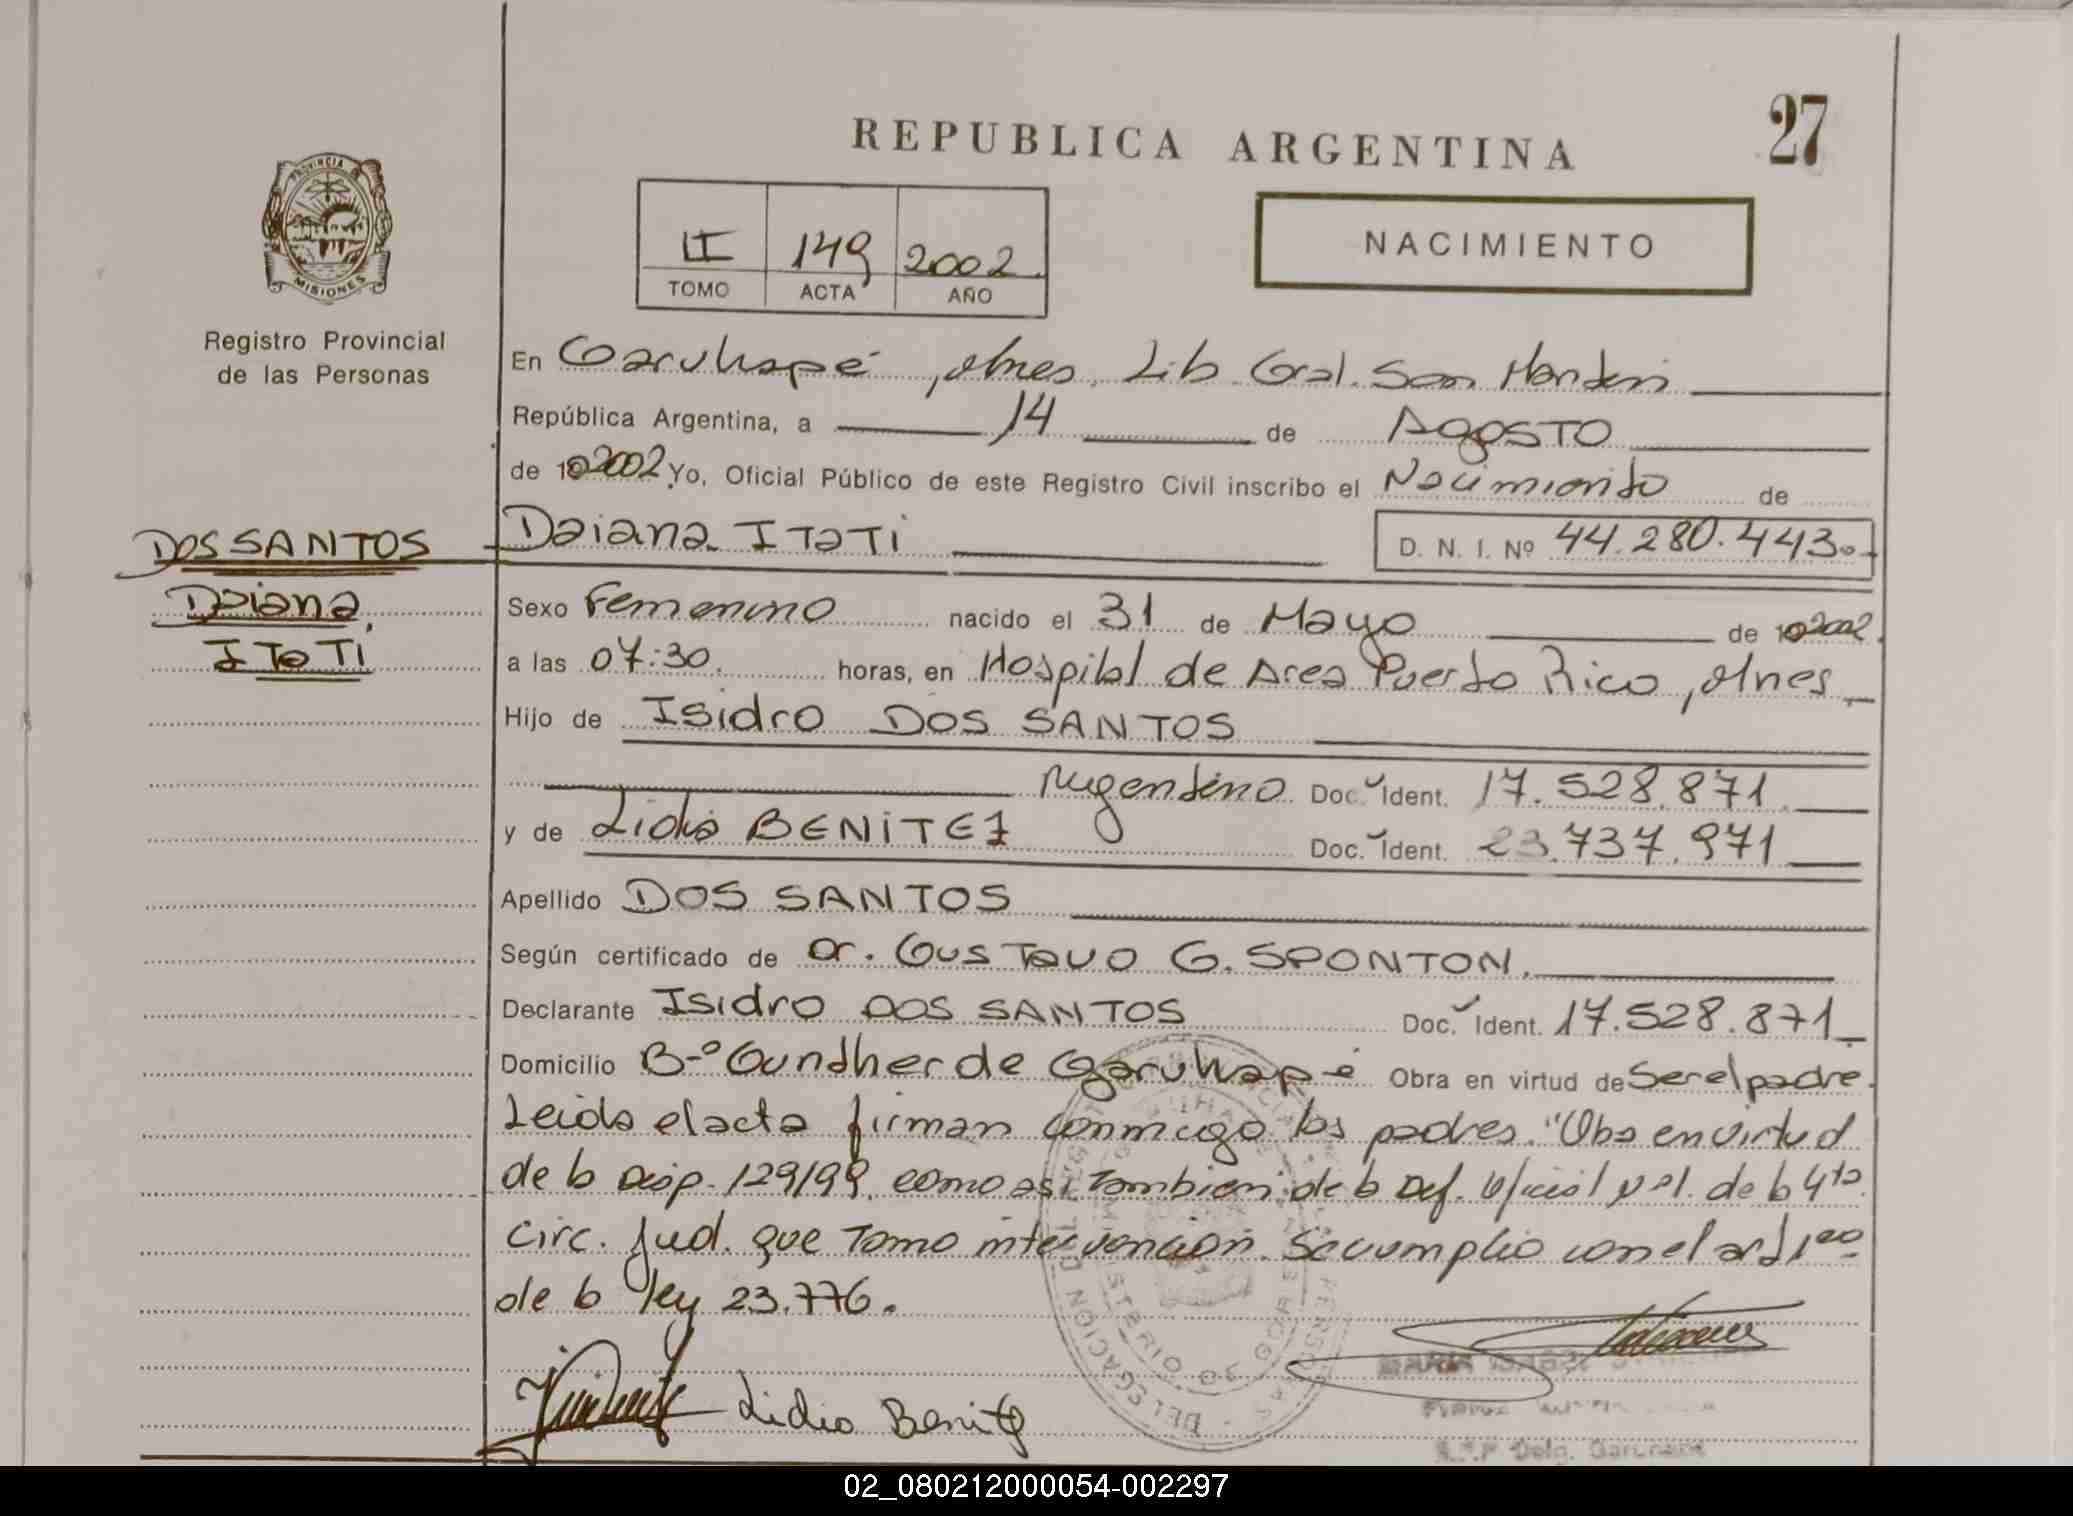 REPUBLICA ARGENTINA
27
PROVINCIA DE
MISIONES
Registro Provincial
de las Personas
II 149 2002
TOMO ACTA AÑO
NACIMIENTO
En Garuhapé, Mnes. Lib. Gral. San Martín
República Argentina, a 14 de AGOSTO
de 2002 Yo, Oficial Público de este Registro Civil inscribo el Nacimiento de
DOS SANTOS
Daiana ITaTi
D. N. I. Nº 44.280.443.
Daiana
ITaTi
Sexo Femenino nacido el 31 de Mayo de 2002.
a las 07:30. horas, en Hospital de Area Puerto Rico, Mnes
Hijo de Isidro DOS SANTOS
Argentino Doc. Ident. 17.528.871
y de Lidia BENITEZ Doc. Ident. 23.737.971
Apellido DOS SANTOS
Según certificado de Dr. GUSTAVO G. SPONTON.
Declarante Isidro DOS SANTOS Doc. Ident. 17.528.871
Domicilio B-º Gundher de Garuhapé Obra en virtud de Ser el padre.
Leida el acta firman conmigo los padres. "Oba en virtud
de la Disp. 129/99. como asi Tambien de la Def. Oficial de la 4ta
Circ. Jud. que Tomo intervencion. Se cumplio con el art 1ero
de la ley 23.776.
Lidia Benite
DELEGACION
MINISTERIO DE GOB
02_080212000054-002297